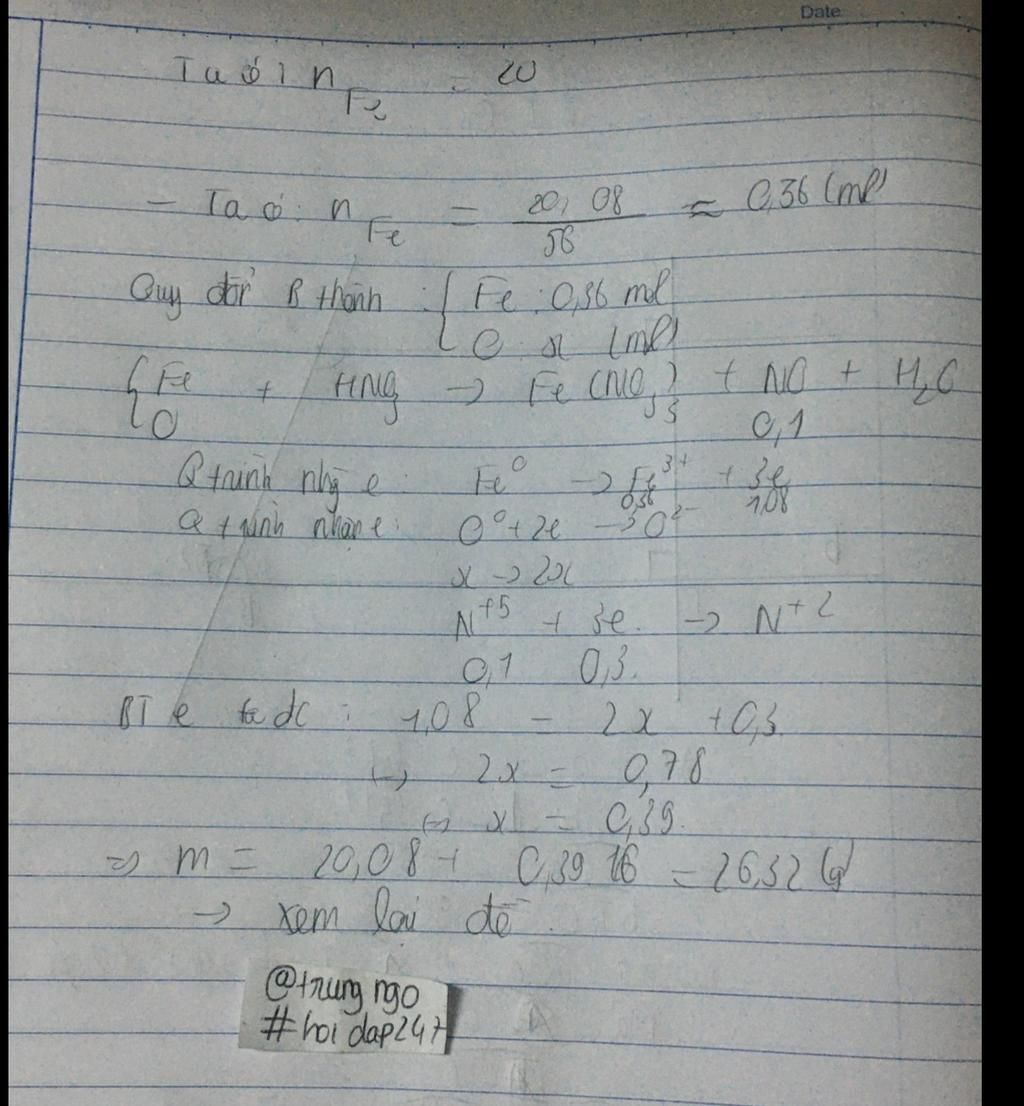 Date
Ta có: n Fe = 20
- Ta có: n Fe = 20,08 / 56 ≈ 0,36 (mol)
Quy đổi B thành : { Fe : 0,36 mol
O x (mol)
{ Fe + HNO3 → Fe(NO3)3 + NO + H2O
O 0,1
Q trình nhg e Fe⁰ → Fe³⁺ + 3e
0,36 1,08
Q trình nhận e: O⁰ + 2e → O²⁻
x → 2x
N⁺⁵ + 3e. → N⁺²
0,1 0,3.
BT e ta dc : 1,08 = 2x + 0,3.
(→ 2x = 0,78
(→ x = 0,39.
=> m = 20,08 + 0,39.16 = 26,32 (g)
→ xem lại đề.
@trung ngo
#hoidap247